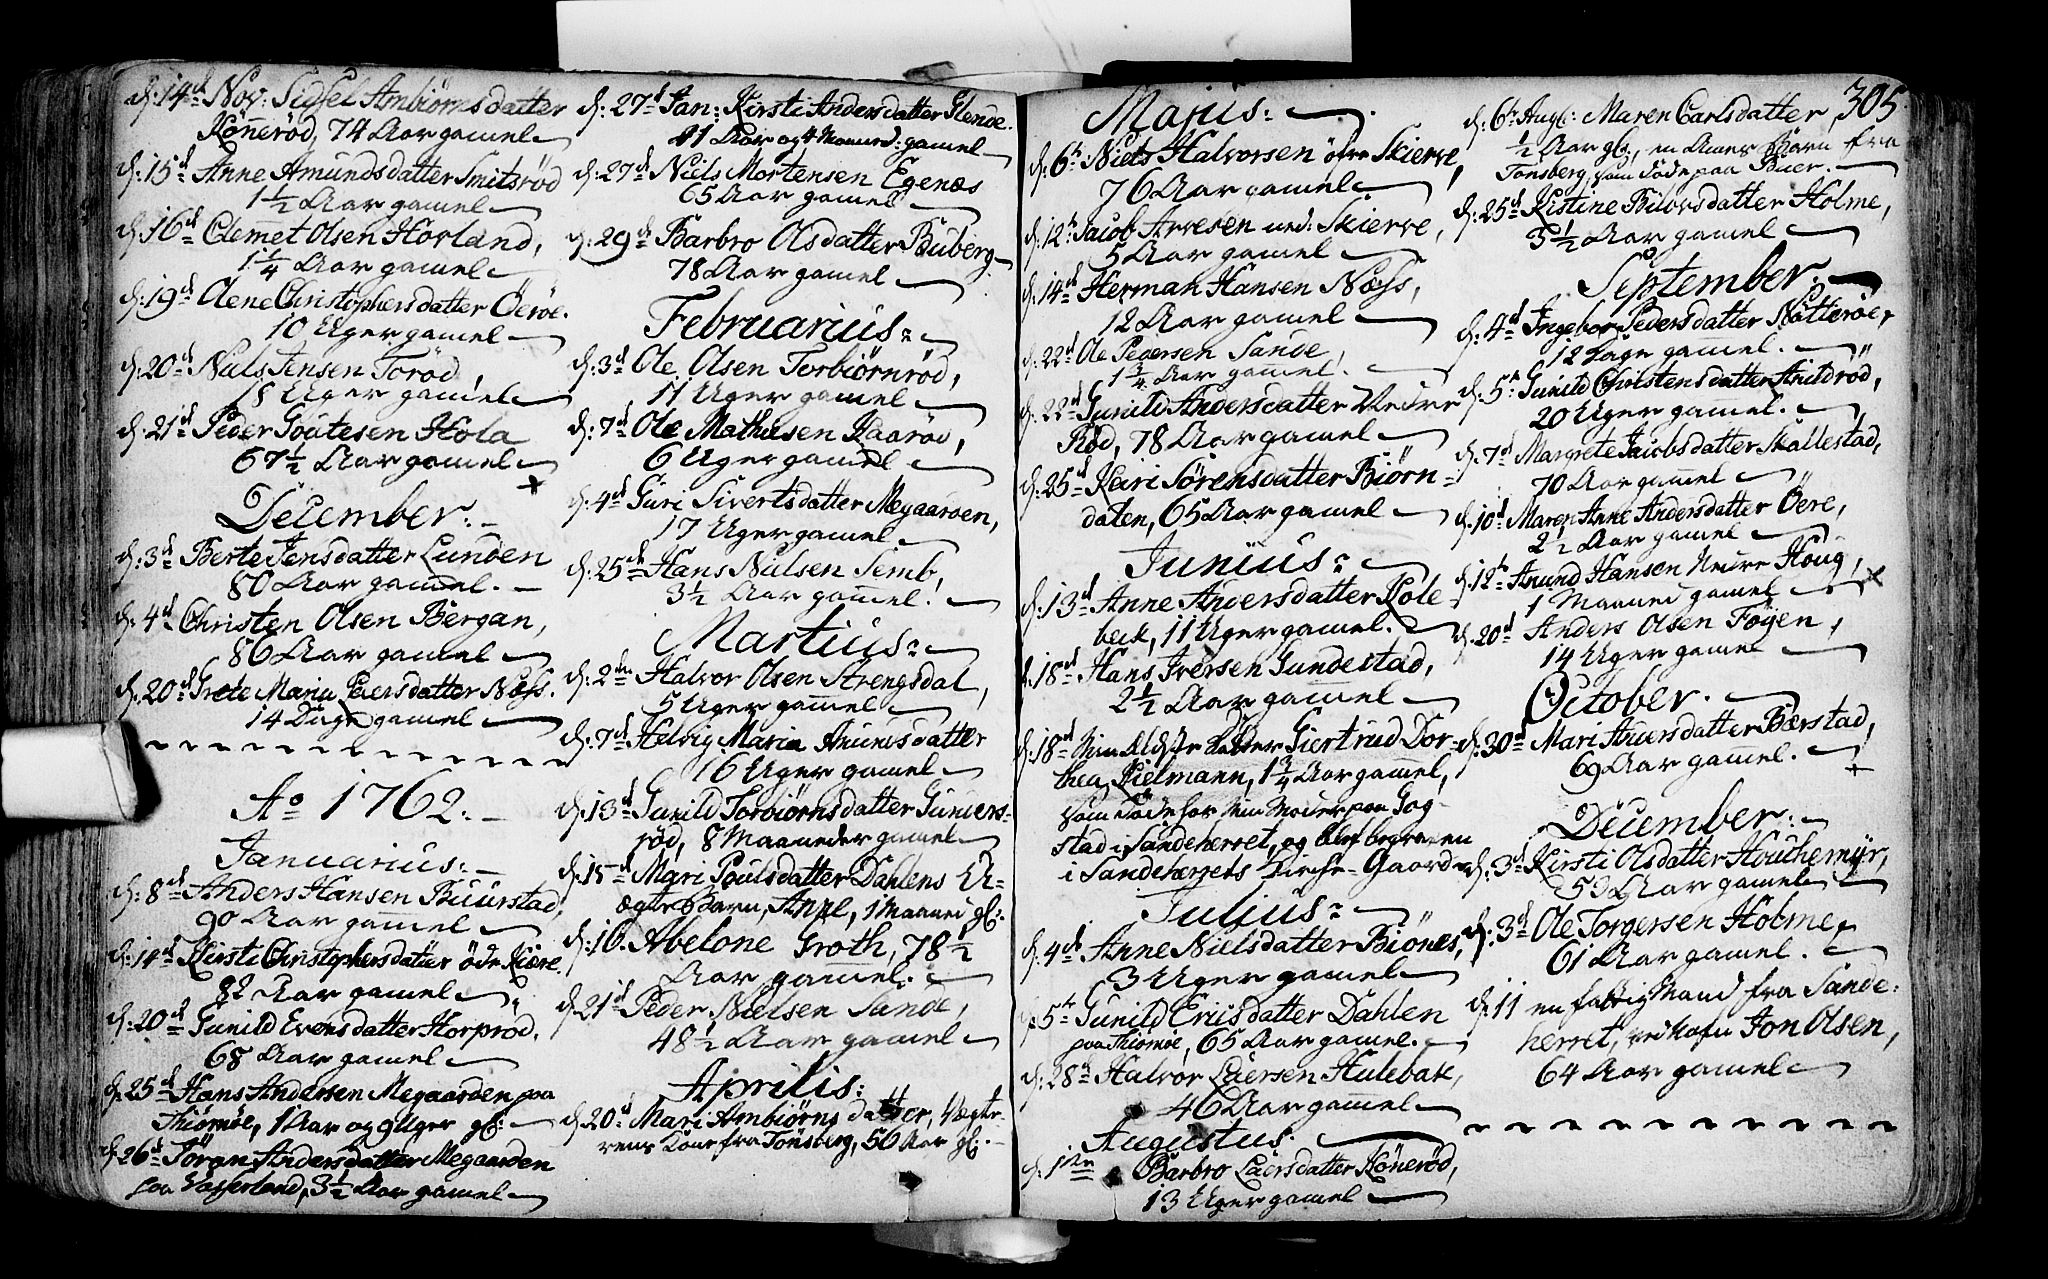 d: 14d Nov: Sidsel Ambiørnsdatter
Kønnerød, 74 Aar gamel
d: 15d Anne Amundsdatter Smitsrød
1 1/2 Aar gamel
d: 16d Clemet Olsen Hovland,
1 1/4 Aar gamel
d: 19d Olene Christophersdatter Øeroe.
10 Uger gamel
d: 20d Niels Jensen Torød,
18 Uger gamel
d: 21d Peder Goutesen Hola
67 1/2 Aar gamel
December:
d: 3d Berte Jensdatter Lunden
80 Aar gamel.
d: 4d Christen Olsen Bergan,
86 Aar gamel
d: 20d Grete Maria Laersdatter Næss.
14 Dage gamel
Ao 1762.
Januarius:
d: 8d Anders Hansen Buurstad,
90 Aar gamel
d: 14d Kirsti Christophersdatter øde Kiære.
82 Aar gamel
d: 20d Gunild Evensdatter Horprød.
68 Aar gamel
d: 25d Hans Andersen Megaarden paa
Thiømøe, 1 Aar og 9 Uger gl:
d: 26d Jøran Andersdatter Megaarden
paa Vasserland, 3 1/2 Aar gamel
d: 27d Jan: Kirsti Andersdatter Glende.
41 Aar og 4 Maaned: gamel
d: 27d Niels Mortensen Egenæs
65 Aar gamel
d: 29d Barbro Olsdatter Buberg
78 Aar gamel
Februarius:
d: 3d Ole Olsen Torbiørnrød,
11 Uger gamel
d: 7d Ole Mathisen Kaarød,
6 Uger gamel
d: 4d Guri Sivertsdatter Megaarden,
17 Uger gamel
d: 25d Hans Nielsen Semb,
3 1/2 Aar gamel.
Martius:
d: 2den Halvor Olsen Strengsdal,
5 Uger gamel
d: 7d Helvig Maria Amundsdatter
16 Uger gamel
d: 13d Gunild Torbiørnsdatter Gunders-
rød, 8 Maaneder gamel
d: 15d Mari Poulsdatter Dahlens U-
ægte Barn, Anne, 1 Maaned gl:
d: 16. Abelone Groth, 78 1/2
Aar gamel.
d: 21d Peder Nielsen Sande,
48 1/2 Aar gamel
Aprilis:
d: 20d Mari Ambiørnsdatter, Vægte-
rens Kone fra Tønsberg, 56 Aar gl.
Majus:
d: 6t Niels Halvorsen øfre Skierve,
76 Aar gamel
d: 12t Jacob Arvesen ned: Skierve,
5 Aar gamel
d: 14d Herman Hansen Næss,
12 Aar gamel
d: 22d Ole Pedersen Sande,
1 3/4 Aar gamel.
d: 22d Gunild Andersdatter Nedre
Rød, 78 Aar gamel
d: 25d Kari Sørensdatter Biørn-
dalen, 65 Aar gamel
Junius:
d: 13d Anne Andersdatter Kole
bek, 11 Uger gamel.
d: 18d Hans Iversen Gundestad,
2 1/2 Aar gamel
d: 18d Min ældste Datter Giertrud Dor-
thea Kielmann, 1 3/4 Aar gamel,
som døde hos Min Moder paa Gog-
stad i Sandeherret, og blef begraven
i Sandeherrets Kirche-Gaard
Julius:
d: 4d Anne Nielsdatter Biønes,
3 Uger gamel
d: 5t Gunild Eriksdatter Dahlen
paa Thiømøe, 65 Aar gamel.
d: 28d Halvor Laersen Hulebak,
46 Aar gamel
Augustus.
d: 1ste Barbro Laersdatter Kønerød,
13 Uger gamel
305.
d: 6t Aug: Maren Carlsdatter,
1/2 Aar gl, en Ames Barn fra
Tønsberg, som døde paa Buer.
d: 25d Kistine Bilovsdatter Holme,
3 1/2 Aar gamel
September.
d: 4d Ingebor Pedersdatter Nøtterøe,
12 Dage gamel.
d: 5t Gunild Christensdatter Arildrød,
20 Uger gamel.
d: 7d Margrete Jacobsdatter Skallestad,
70 Aar gamel
d: 10d Maren Anne Andersdatter Øere,
2 1/2 Aar gamel
d: 12t Amund Hansen Nedre Houg,
1 Maaned gamel
d: 20d Anders Olsen Føyen,
14 Uger gamel
October.
d: 30d Mari Auersdatter Bærstad,
69 Aar gamel.
December:
d: 3d Kirsti Olsdatter Houchemyr,
59 Aar gamel
d: 3d Ole Torgersen Holme
61 Aar gamel.
d: 11 en fattig Mand fra Sande:
herret, ved Nafn Jon Olsen,
64 Aar gamel